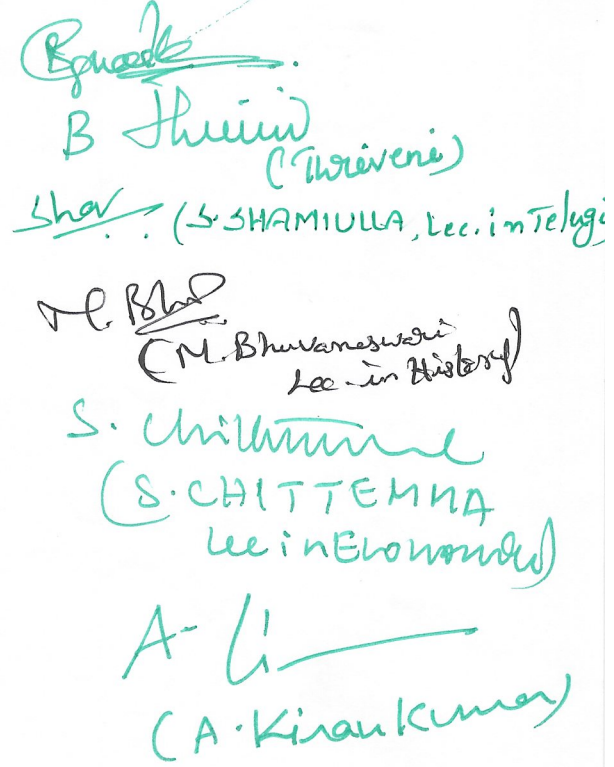 B Thriveni
(Thriveni)
(S. SHAMIULLA, Lec. in Telugu
M. Bhu
(M. Bhuvaneswari
Lec. in History)
S. Chittemma
(S. CHITTEMMA
Lec in Economics)
A-
(A. Kiran Kumar)